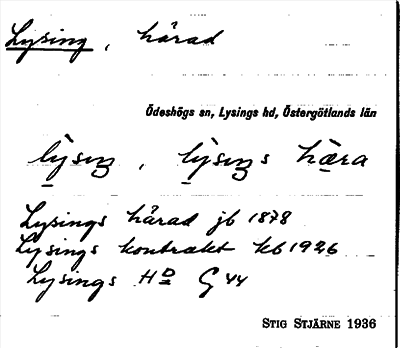 Lysing, härad
Ödeshögs sn, Lysings hd, Östergötlands län
Lysings härad jb 1878
Lysings kontrakt kb 1926
Lysings HD G 44
STIG STJÄRNE 1936